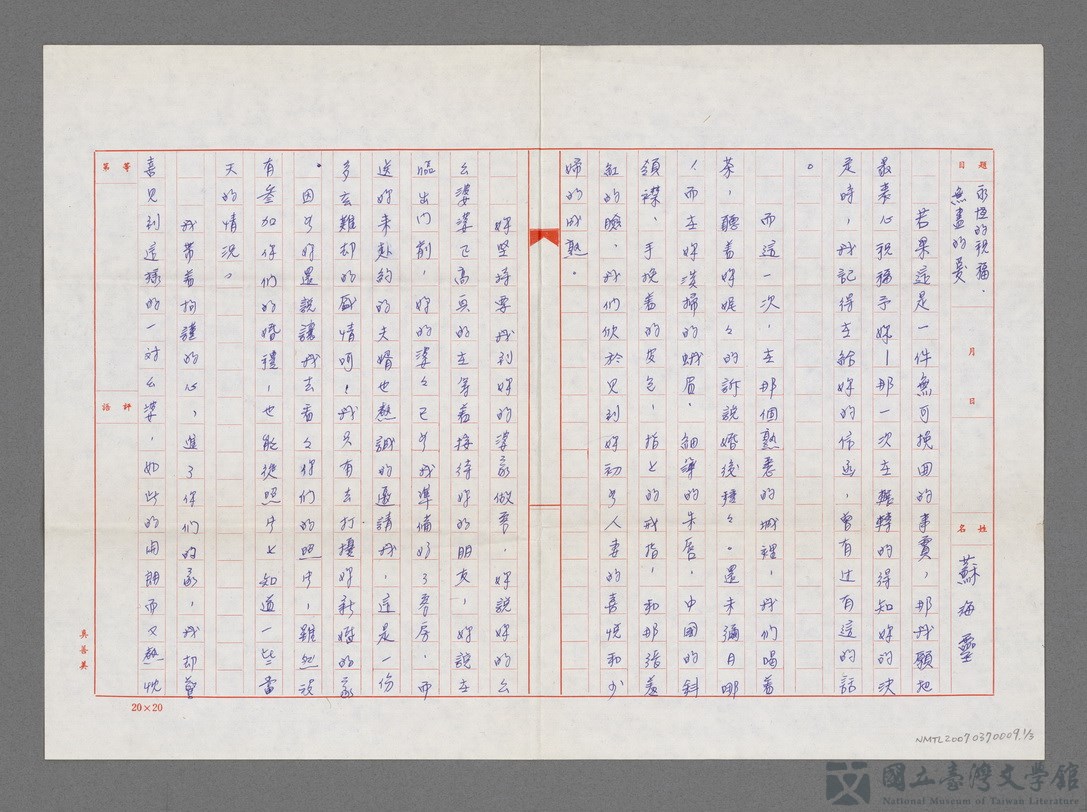 題目
永恆的祝福.
無盡的愛
月
日
姓名
蘇海靈
若果這是一件無可挽回的事實,那我願把
最衷心祝福予妳—那一次在輾轉的得知妳的決
定時,我記得在給妳的信函,曾有过有這的話
。
而這一次,在那個熟悉的城裡,我們喝着
茶,聽着妳娓々的訴說婚後種々。還未彌月哪
!而在妳淡掃的蛾眉,細薄的朱唇,中國的斜
領襟,手挽着的皮包,指上的戒指,和那張羞
紅的臉,我們欣於見到妳初为人妻的喜悅和少
婦的成熟。
妳堅持要我到妳的婆家做客,妳說妳的公
公婆婆已高興的在等着接待妳的朋友,妳說在
臨出门前,妳的婆々已为我準備好了客房,而
送妳來赴約的夫婿也熱誠的邀請我,這是一份
多么難却的盛情呵!我只有去打擾妳新婚的家
。因为妳還說讓我去看々你們的照片,雖然沒
有參加你們的婚禮,也能從照片上知道一些當
天的情況。
我帶着拘謹的心,進了你們的家,我却驚
喜見到這樣的一对公婆,如此的開朗而又熱忱
第 等
評語
真善美
20×20
NMTL20070370009.1/3
國立臺灣文學館
National Museum of Taiwan Literature